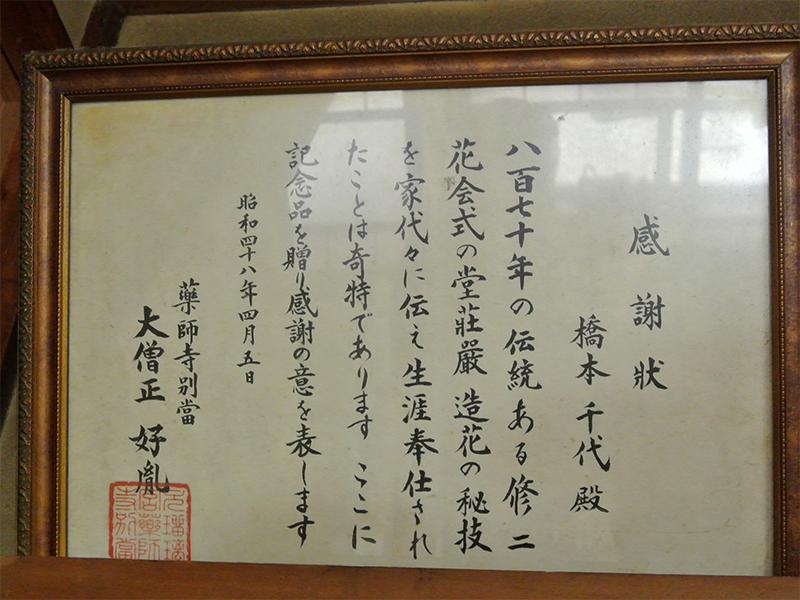 感謝狀
橋本千代殿
八百七十年の伝統ある修二
花会式の堂莊嚴造花の秘技
を家代々に伝え生涯奉仕され
たことは奇特であります ここに
記念品を贈り感謝の意を表します
昭和四十八年四月五日
藥師寺別當
大僧正 好胤